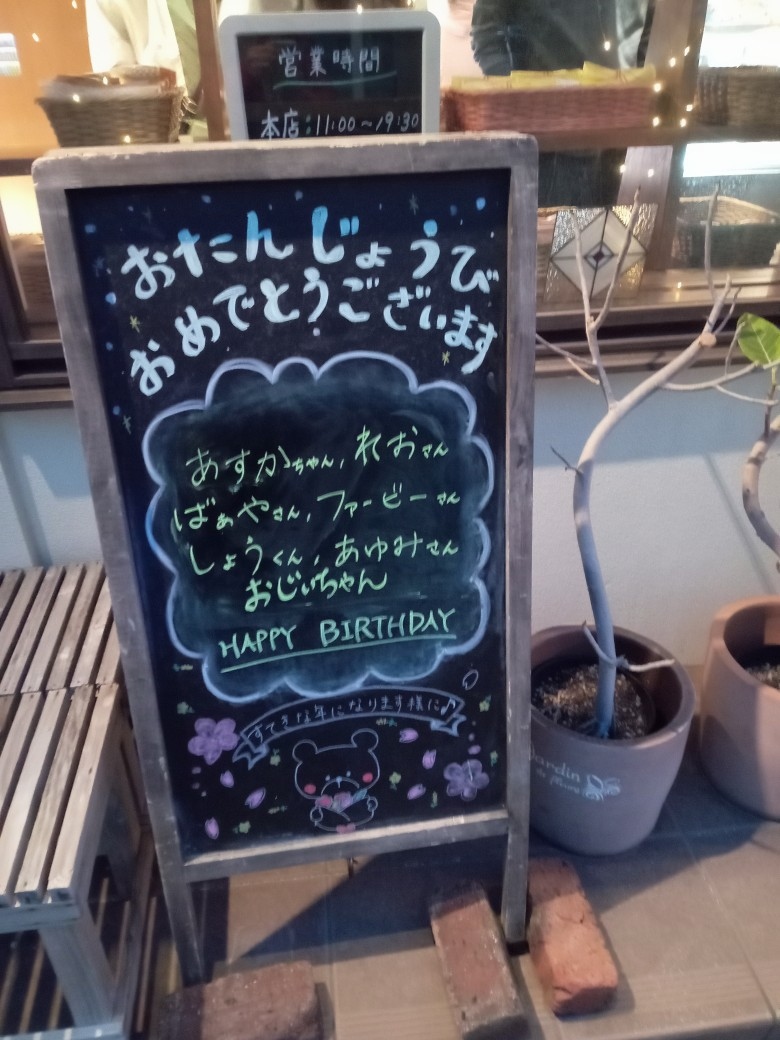 営業時間
本店:11:00～19:30
おたんじょうび
おめでとうございます
あすかちゃん,れおさん
ばぁやさん,ファービーさん
しょうくん,あゆみさん
おじいちゃん
HAPPY BIRTHDAY
すてきな年になります様に♪
Jardin
de fleurs